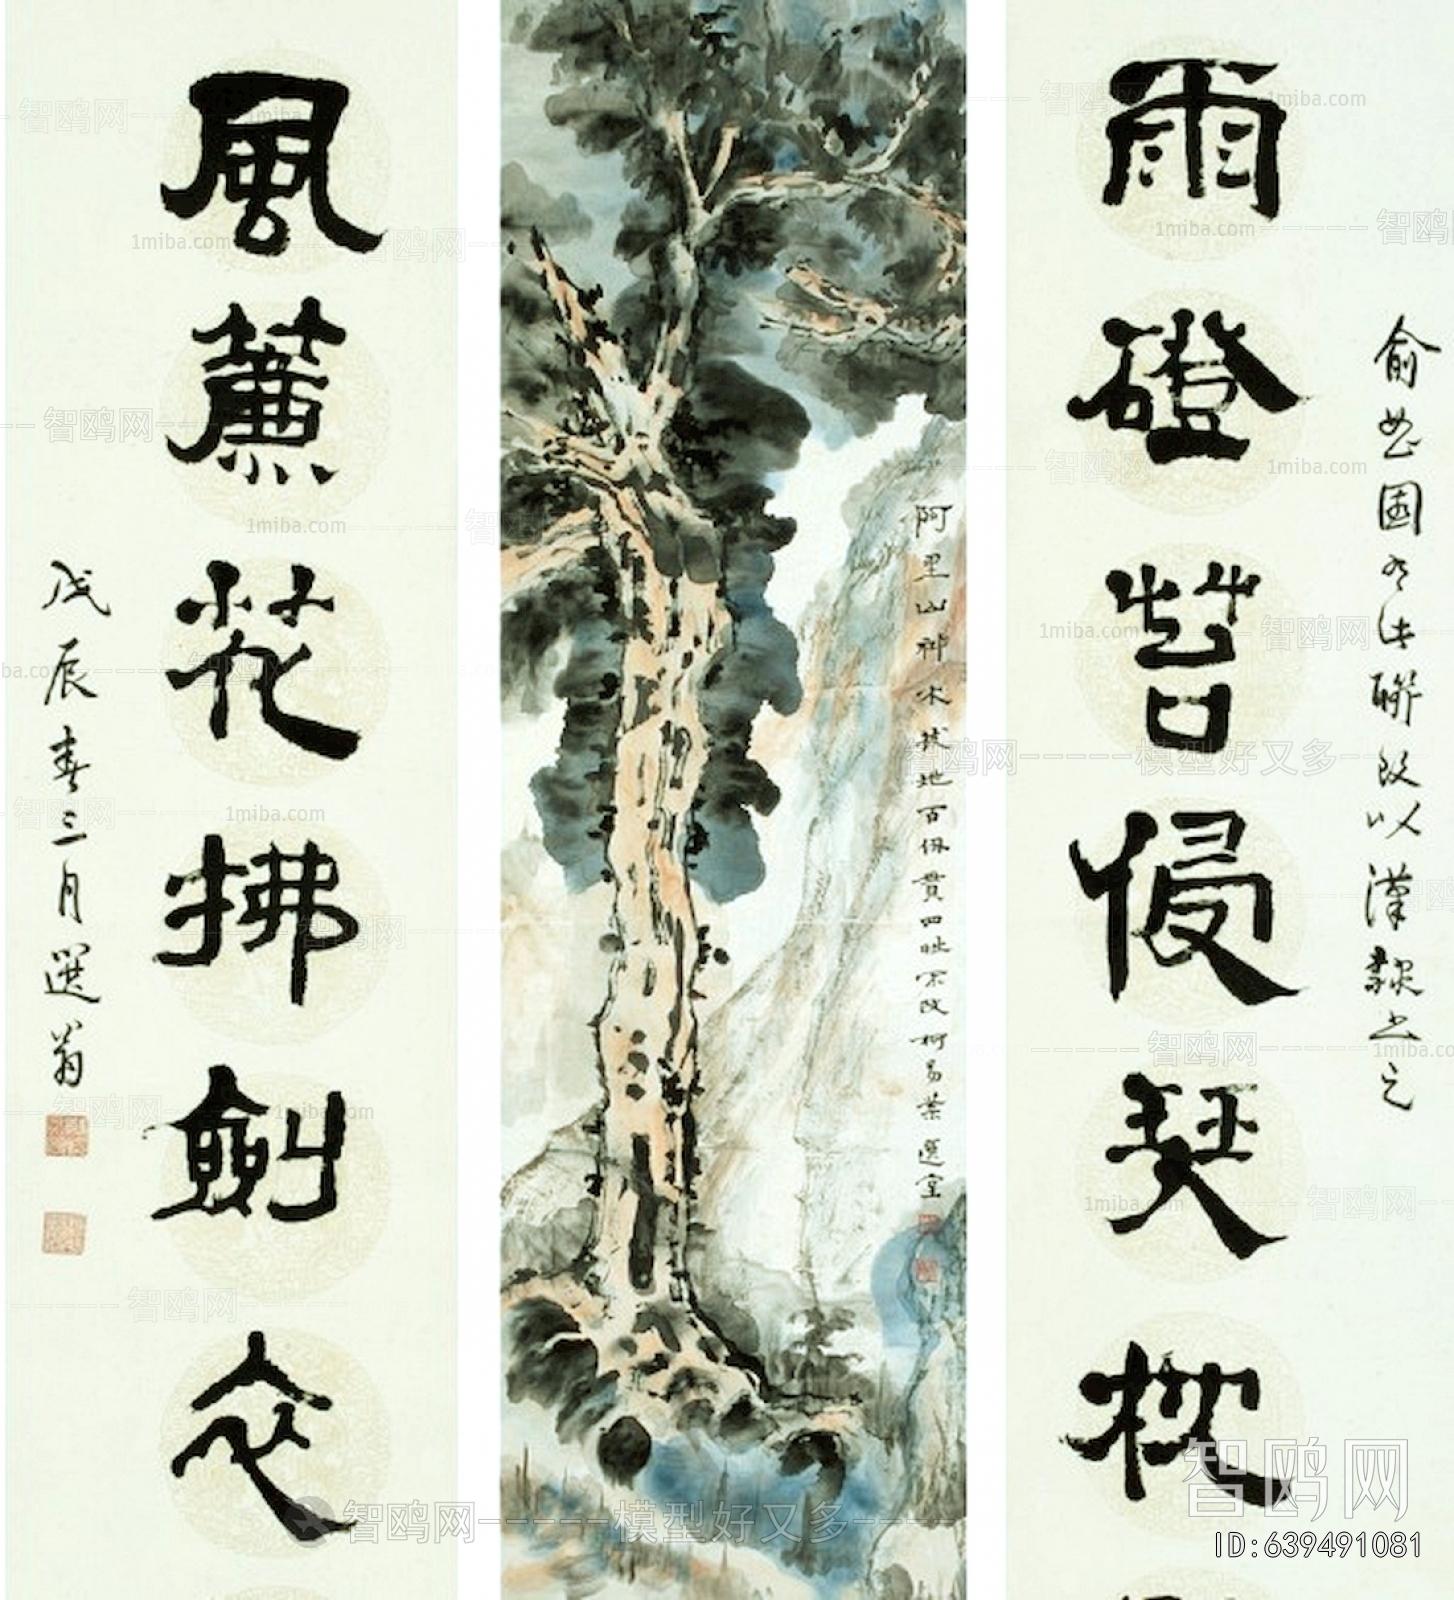 俞曲園有此聯改以漢隸書之
雨磴苔侵琴枕
阿里山神木拔地百仞貫四時不改柯易葉選堂
風簾花拂劍衣
戊辰春三月選翁
智鸥网
1miba.com
智鸥网-----模型好又多----
智鸥网
ID:639491081